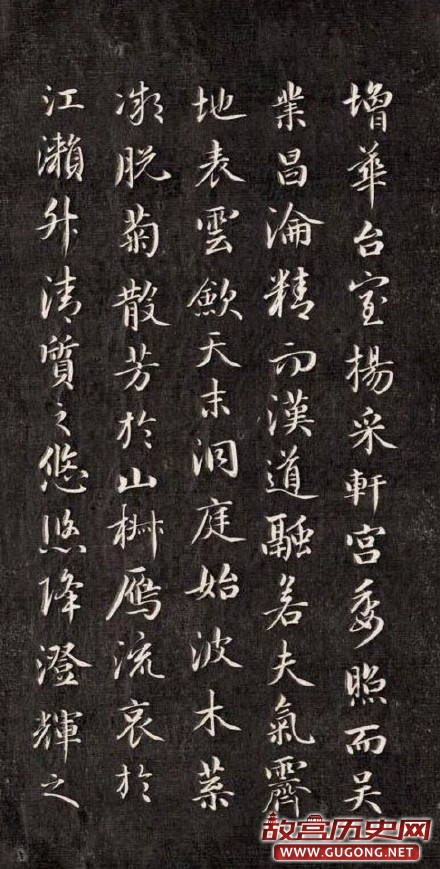 增華台室揚采軒宮委照而吳
業昌淪精而漢道融若夫氣霽
地表雲歛天末洞庭始波木葉
微脫菊散芳於山椒鴈流哀於
江瀨升清質之悠悠降澄輝之
故宫历史网
WWW.GUGONG.NET